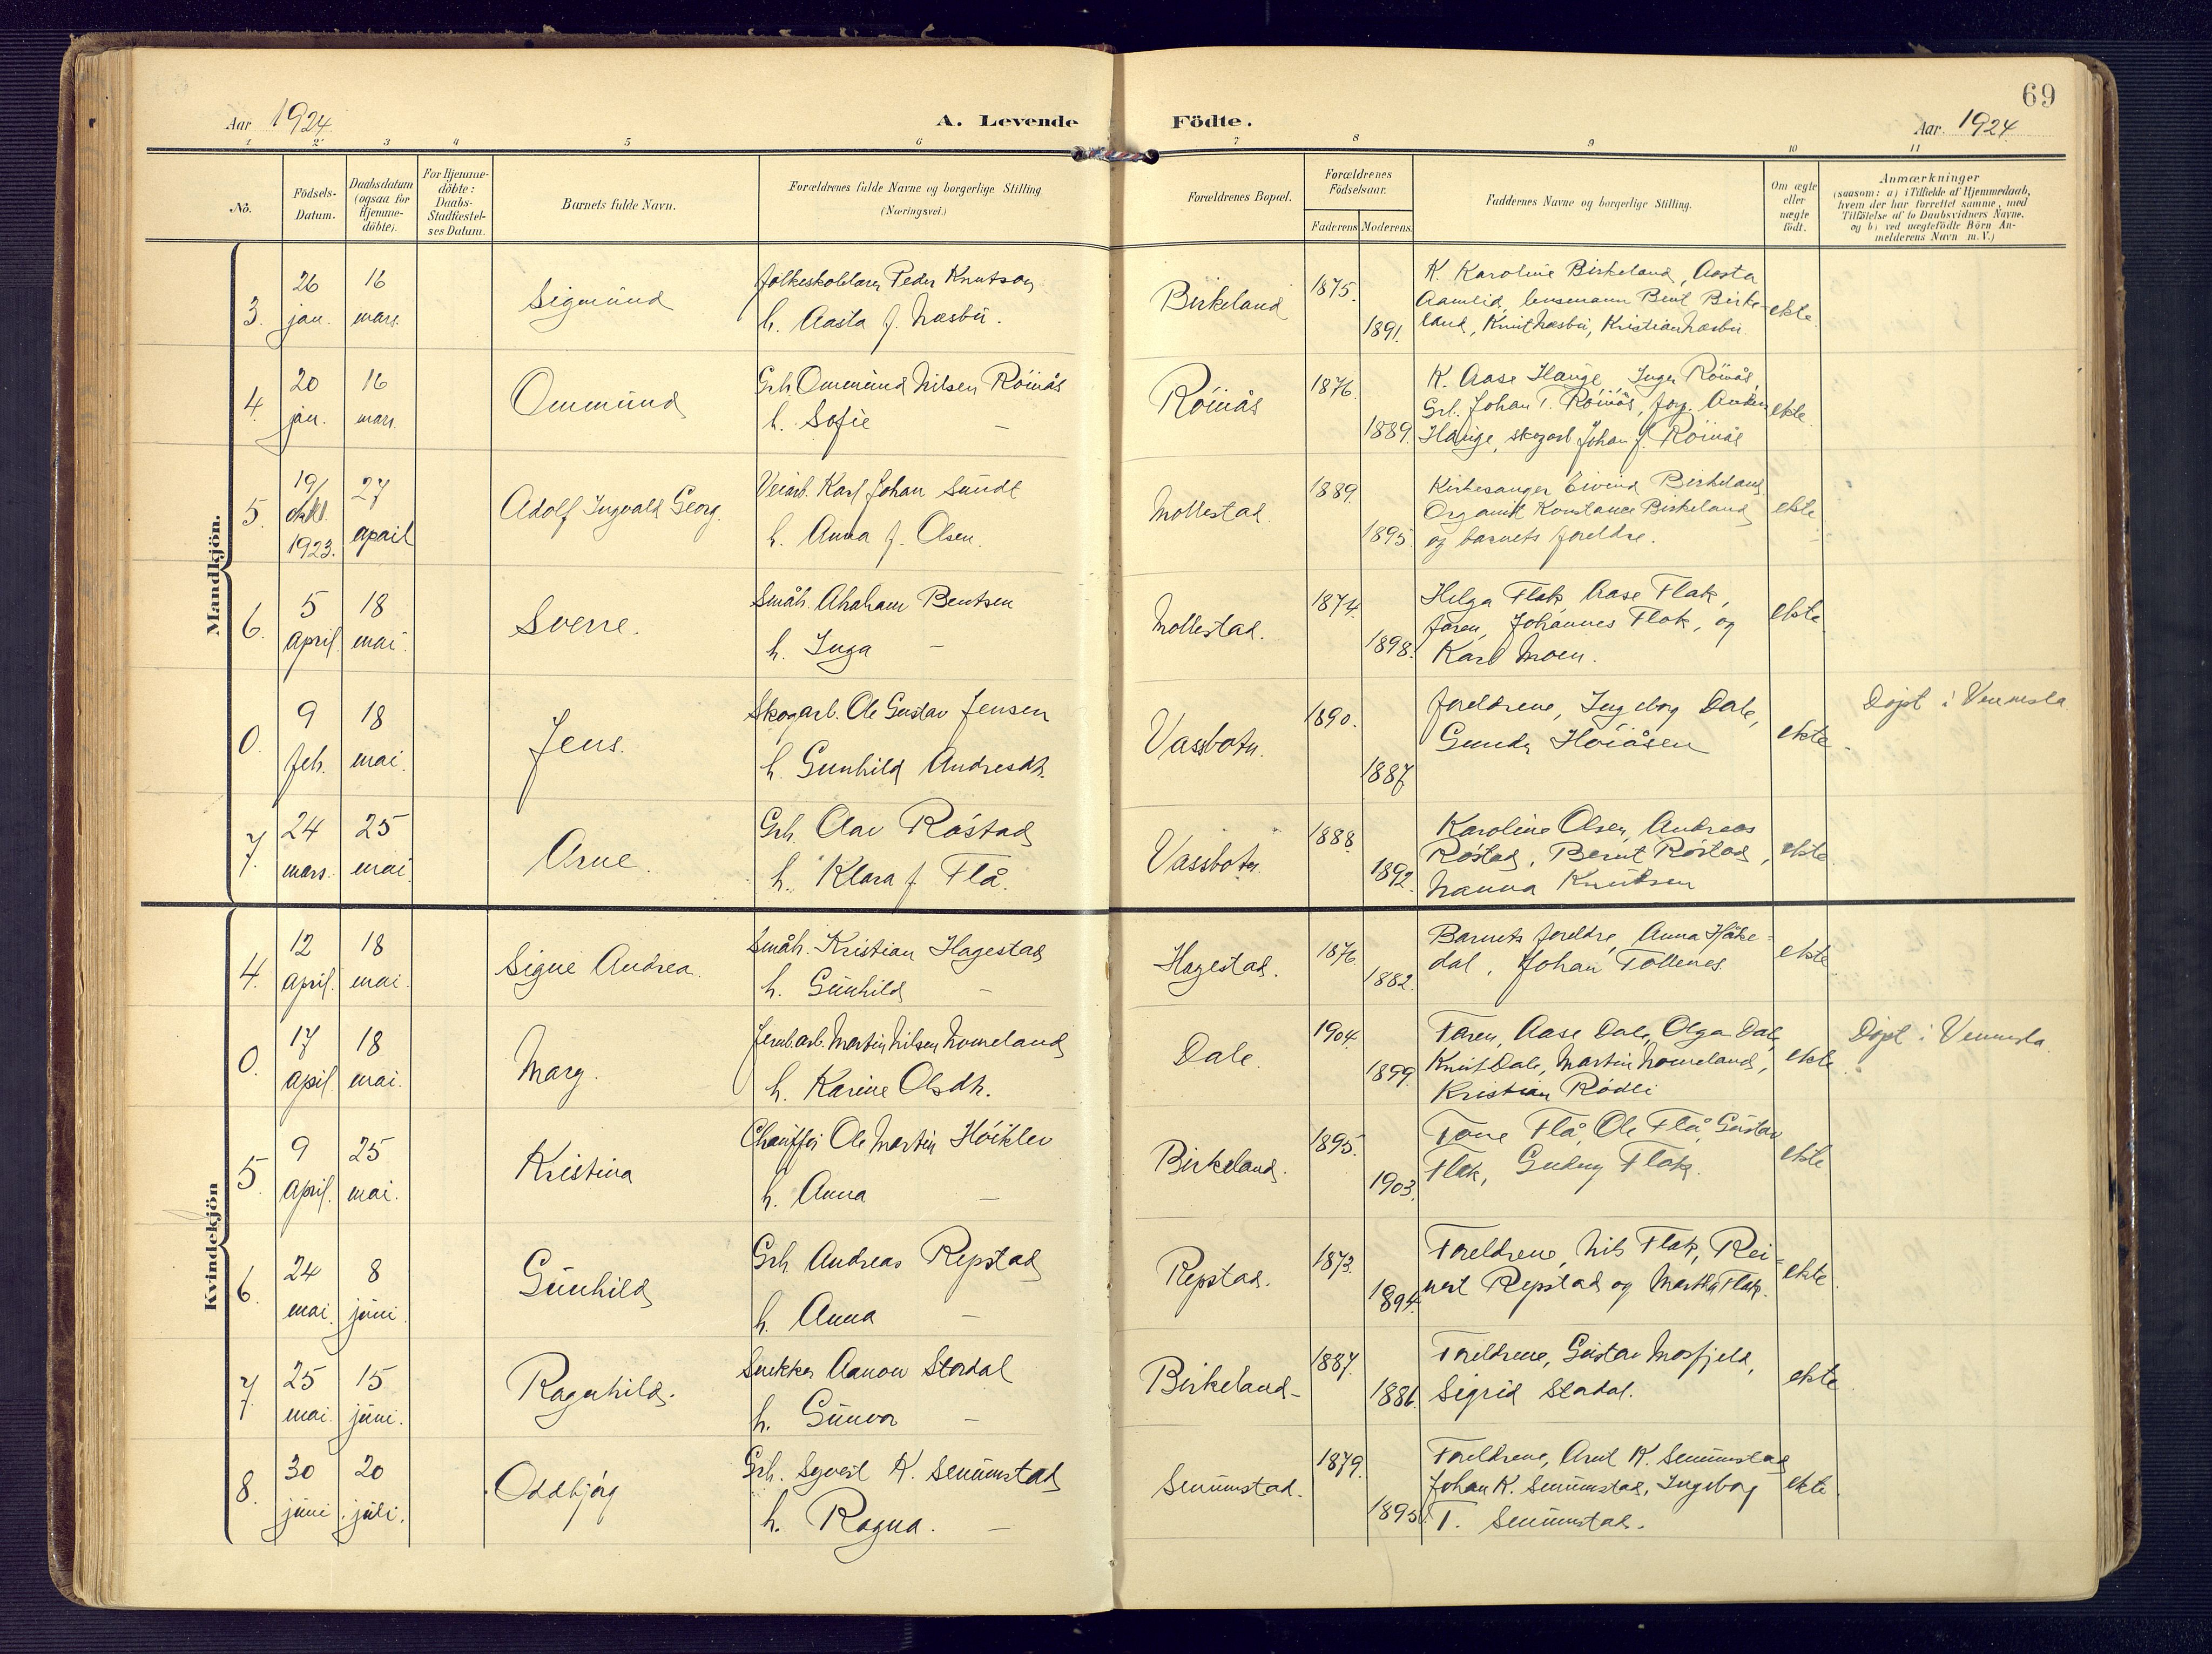 69
Aar 1924
A. Levende Födte.
Aar. 1924
1 2 3 4 5 6 7 8 9 10 11
No.
Födsels-Datum.
Daabsdatum (ogsaa for Hjemme-döbte).
For Hjemme-döbte: Daabs-Stadfæstel-ses Datum.
Barnets fulde Navn.
Forældrenes fulde Navne og borgerlige Stilling
(Næringsvei.)
Forældrenes Bopæl.
Forældrenes Födselsaar.
Faderens Moderens.
Faddernes Navne og borgerlige Stilling.
Om ægte eller uægte födt.
Anmærkninger
(saasom: a) i Tilfælde af Hjemmedaab,
hvem der har forrettet samme, med
Tilföielse af to Daabsvidners Navne.
og b) ved uægtefödte Börn An-
melderens Navn m.V.)
Mandkjön.
3. 26 jan. 16 mars. Sigmund
Folkeskolelærer Peder Knutson
h. Aasta f. Næsbu.
Birkeland 1875. 1891.
K. Karoline Birkeland, Aasta
Aamlid, lensmann Bent Birke-
land, Knut Næsbu, Kristian Næsbu
ekte
4. 20 jan. 16 mars. Ommund
Grb. Ommund Nilsen Röinås
h. Sofie –
Röinås 1876. 1889.
K. Aase Hauge, Inger Röinås,
Grb. Johan T. Röinås, forp. Anders
Hauge, skogarb Johan J. Röinås
ekte
5. 19/ okt. 1923. 27 april Adolf Ingvald Georg.
Veiarb. Karl Johan Sundt
h. Anna f. Olsen.
Mollestad. 1889. 1895.
Kirkesanger Eivind Birkeland
Organist Konstance Birkeland
og barnets foreldre.
ekte
6. 5 april. 18 mai. Sverre.
Småb. Abraham Bentsen
h. Inga –
Mollestad. 1874. 1898.
Helga Flak, Aase Flak,
faren, Johannes Flak, og
Karl Moen.
ekte
0. 9 feb. 18 mai. Jens.
Skogarb. Ole Gustav Jensen
h. Gunhild Andresdt.
Vassbotn. 1890. 1887
foreldrene, Ingeborg Dale,
Gunda Höiåsen
ekte
Döpt i Vennesla
7. 24 mars. 25 mai. Arne.
Grb. Olav Röstad
h. Klara f. Flå.
Vassbotn. 1888. 1892.
Karoline Olsen, Andreas
Röstad, Bernt Röstad,
Nanna Knutsen
ekte
Kvindekjön
4. 12 april. 18 mai. Signe Andrea.
Småb. Kristian Hagestad
h. Gunhild –
Hagestad. 1876. 1882.
Barnets foreldre, Anna Håke-
dal, Johan Tollenes
ekte
0. 17 april 18 mai. Marg.
Jernb.arb. Martin Nilsen Nomeland
h. Karine Olsdt.
Dale. 1904. 1899.
Faren, Aase Dale, Olga Dale,
Knut Dale, Martin Nomeland,
Kristian Rödli
ekte
Döpt i Vennesla.
5. 9 april. 25 mai. Kristina
Chauffør Ole Martin Höiklev
h. Anna –
Birkeland. 1895. 1903.
Tone Flå, Ole Flå, Gustav
Flak, Gudny Flak.
ekte
6. 24 mai. 8 juni. Gunhild
Grb Andreas Repstad
h. Anna –
Repstad. 1873. 1894.
Foreldrene, Nils Flak, Rei-
nert Repstad og Martha Flak.
ekte
7. 25 mai. 15 juni. Ragnhild.
Snekker Aanon Stordal
h. Gunvor –
Birkeland – 1887. 1886.
Foreldrene, Gustav Mosfjeld,
Sigrid Stordal.
ekte
8. 30 juni. 20 juli. Oddbjörg
Grb. Syvert K. Senumstad
h. Ragna. –
Senumstad. 1879. 1895.
Foreldrene, Arnt K. Senumstad
Johan K. Senumstad, Ingeborg
T. Senumstad.
ekte